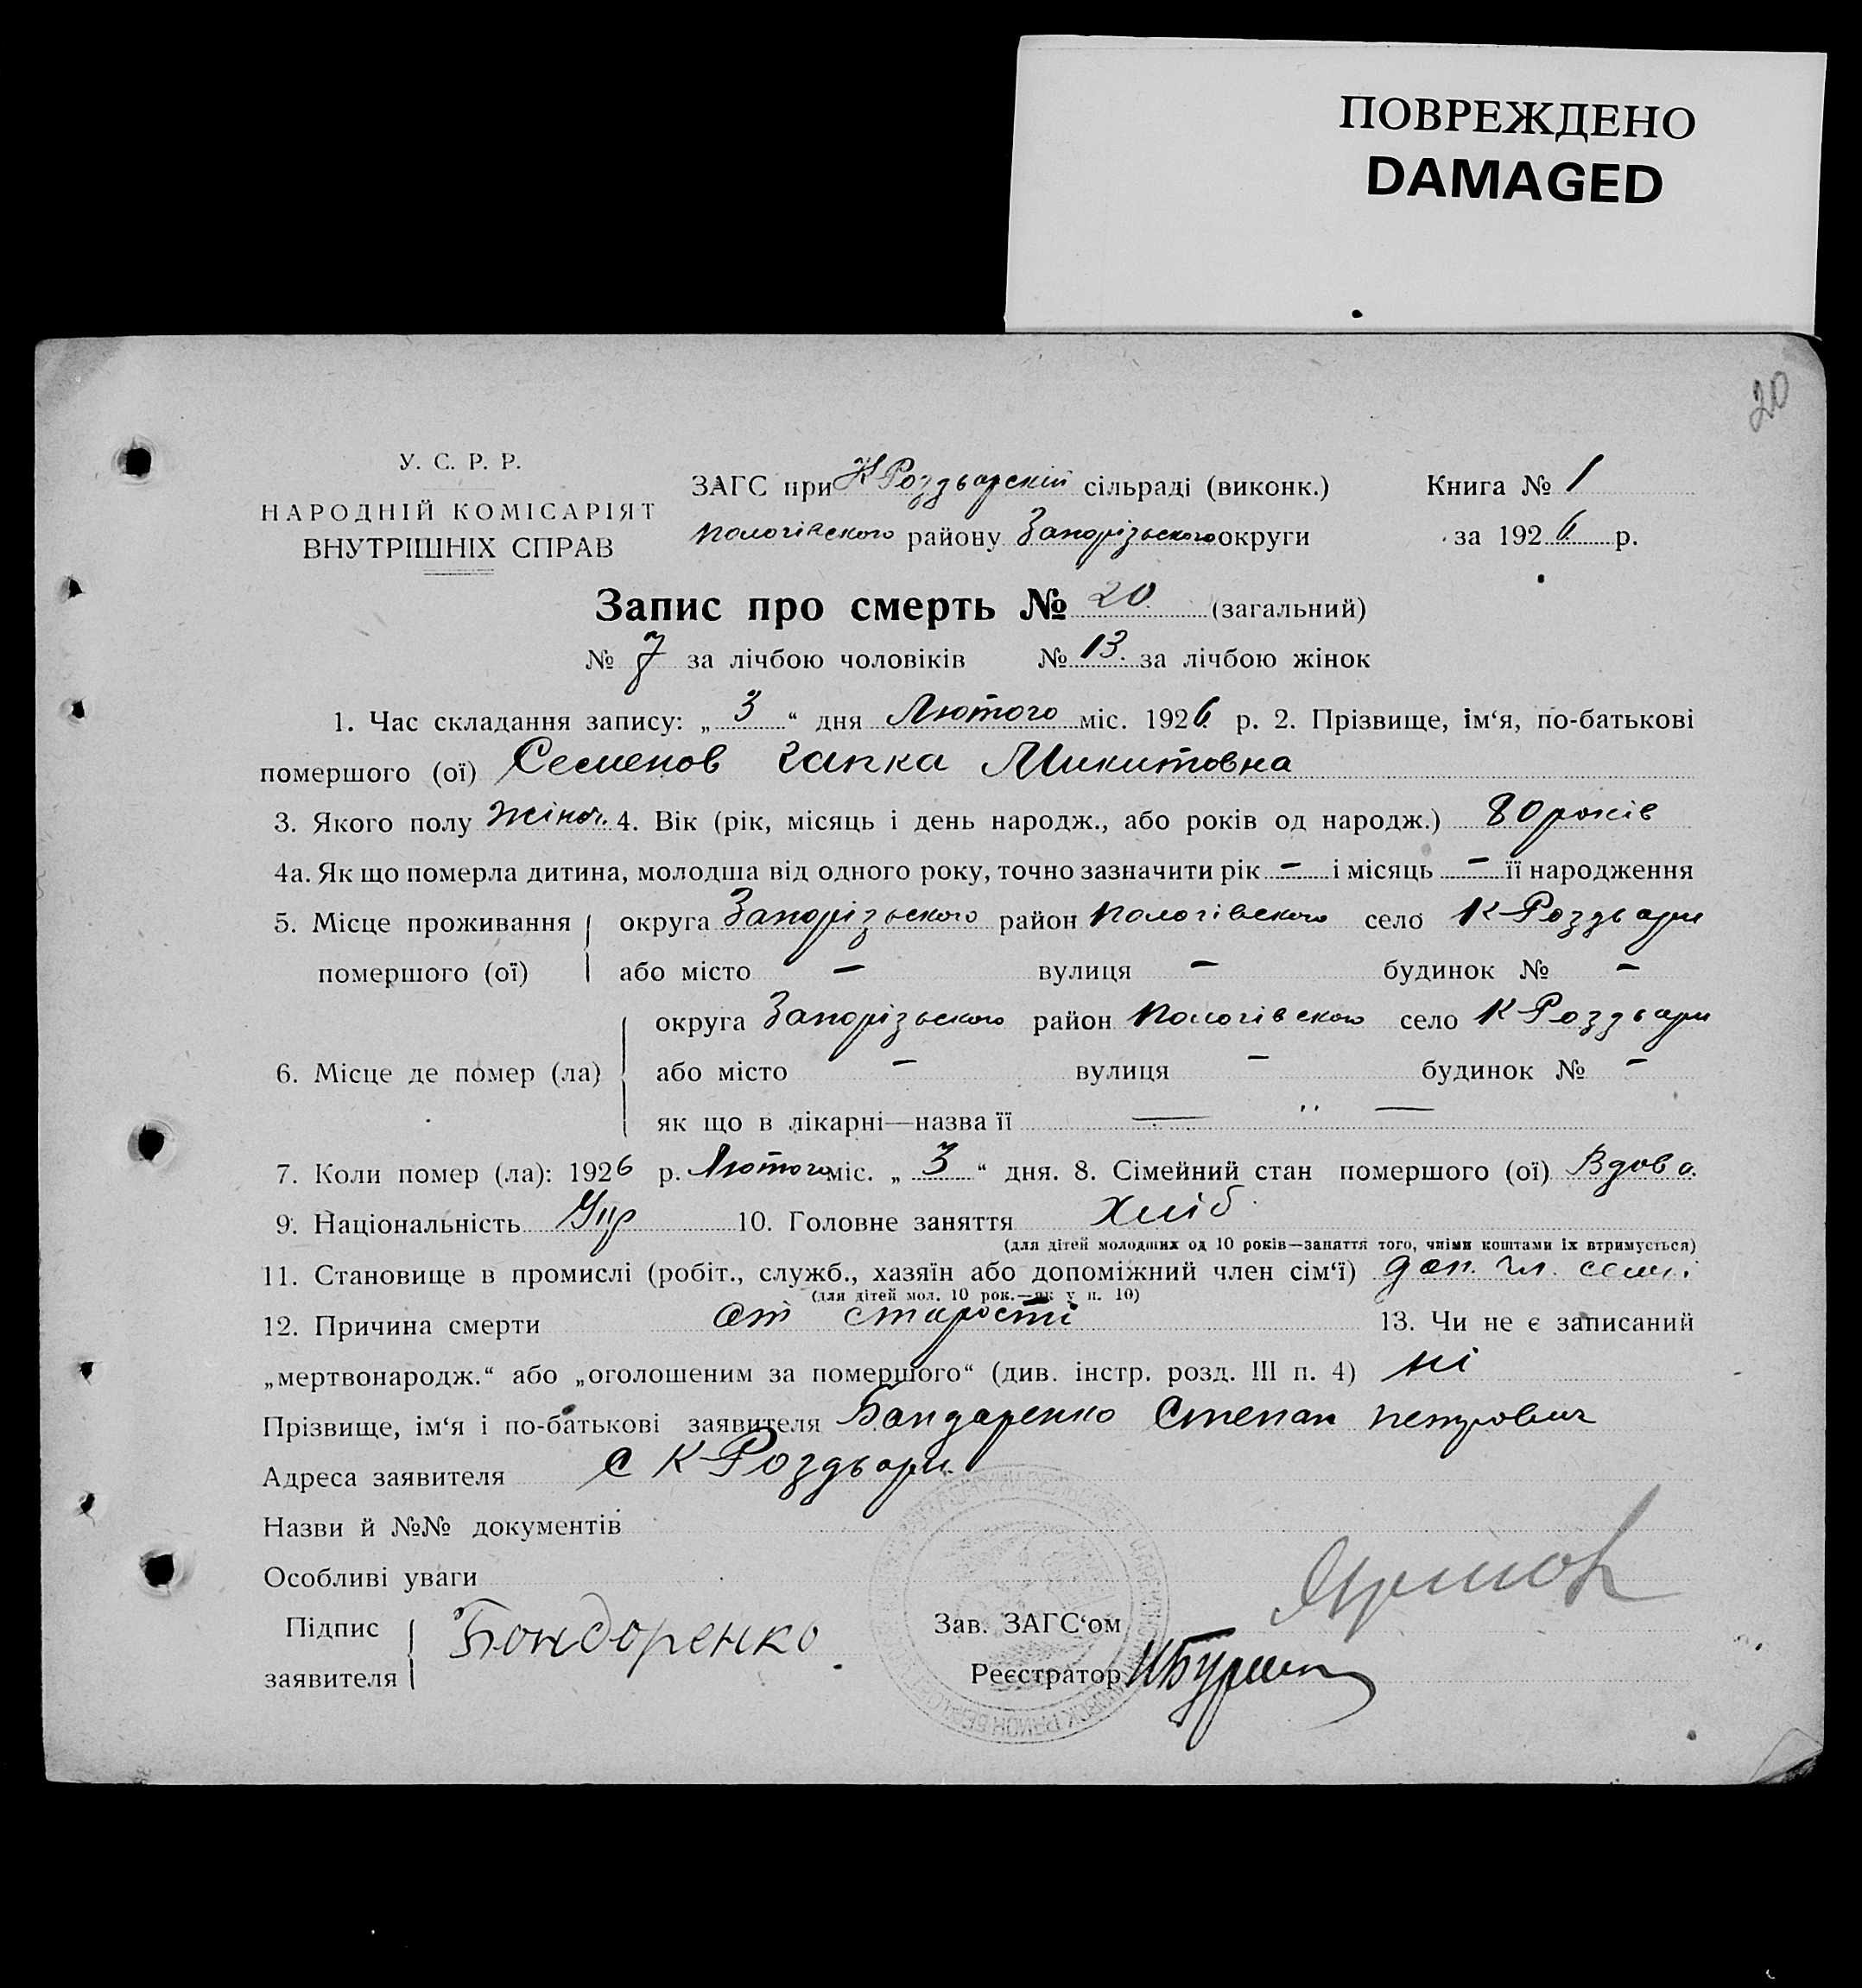 ПОВРЕЖДЕНО
DAMAGED
20
У. С. Р. Р.
НАРОДНІЙ КОМІСАРІЯТ
ВНУТРІШНІХ СПРАВ
ЗАГС при К Роздьорскій сільраді (виконк.)
Пологівского району Запорізького округи
Книга № 1
за 1926 р.
Запис про смерть № 20 (загальний)
№ 7 за лічбою чоловіків № 13. за лічбою жінок
1. Час складання запису: „ 3 “ дня Лютого міс. 1926 р. 2. Прізвище, ім‘я, по-батькові
помершого (ої) Семенов Гапка Микитовна
3. Якого полу жіноч. 4. Вік (рік, місяць і день народж., або років од народж.) 80 років
4а. Як що померла дитина, молодша від одного року, точно зазначити рік – і місяць – її народження
5. Місце проживання помершого (ої)
округа Запорізьского район Пологівского село К Роздьори
або місто – вулиця – будинок № –
6. Місце де помер (ла)
округа Запорізьского район Пологівского село К Роздьори
або місто – вулиця – будинок № –
як що в лікарні—назва її — „ —
7. Коли помер (ла): 1926 р. Лютого міс. „ 3 “ дня. 8. Сімейний стан помершого (ої) Вдова.
9. Національність Укр 10. Головне заняття Хліб.
(для дітей молодших од 10 років—заняття того, чиїми коштами їх втримується)
11. Становище в промислі (робіт., служб., хазяїн або допоміжний член сім‘ї) доп. чл. семі
(для дітей мол. 10 рок.—як у п. 10)
12. Причина смерти от старості 13. Чи не є записаний
„мертвонародж.“ або „оголошеним за помершого“ (див. інстр. розд. III п. 4) ні
Прізвище, ім‘я і по-батькові заявителя Бандаренко Степан Петрович
Адреса заявителя С К Роздьори.
Назви й №№ документів
Особливі уваги
Підпис заявителя Бондоренко
Зав. ЗАГС‘ом
Реєстратор